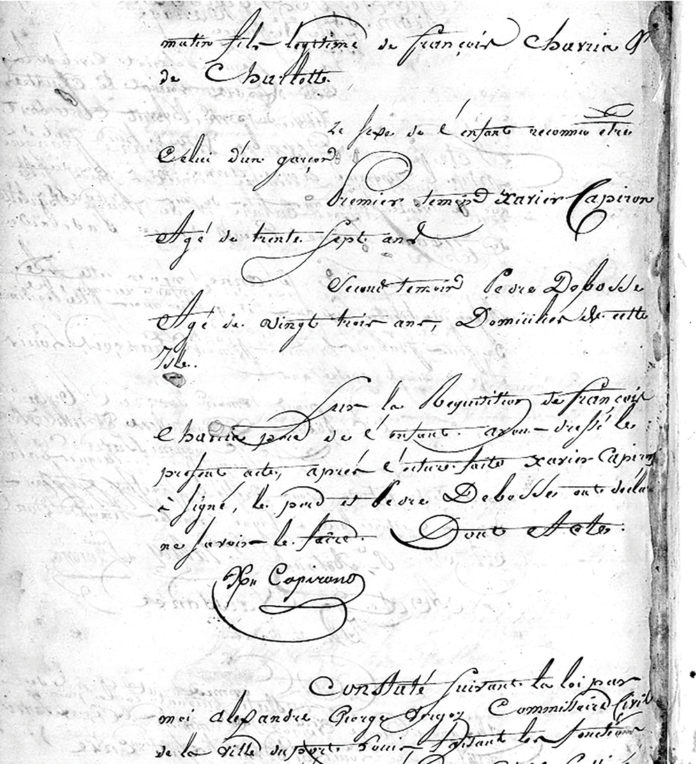 matin fils legitime de françois Charria &
de Charlotte
Le sexe de l'enfant reconnu être
Celui d'un garçon.
Premier temoin Xavier Capiron
Agé de trente sept ans
Second temoin Debosse
Agé de vingt trois ans, Domiciliés de cette
Isle.
Sur la Requisition de françois
Charria pere de l'enfant avons dressé le
present acte, après lecture faite Xavier Capiron
a signé, le pere et Debosse ont declaré
ne savoir le faire. Dont Acte.
Xer Capirono
Constaté suivant la loi par
moi Alexandre George Commissaire Civil
de la Ville du port Louis faisant les fonctions